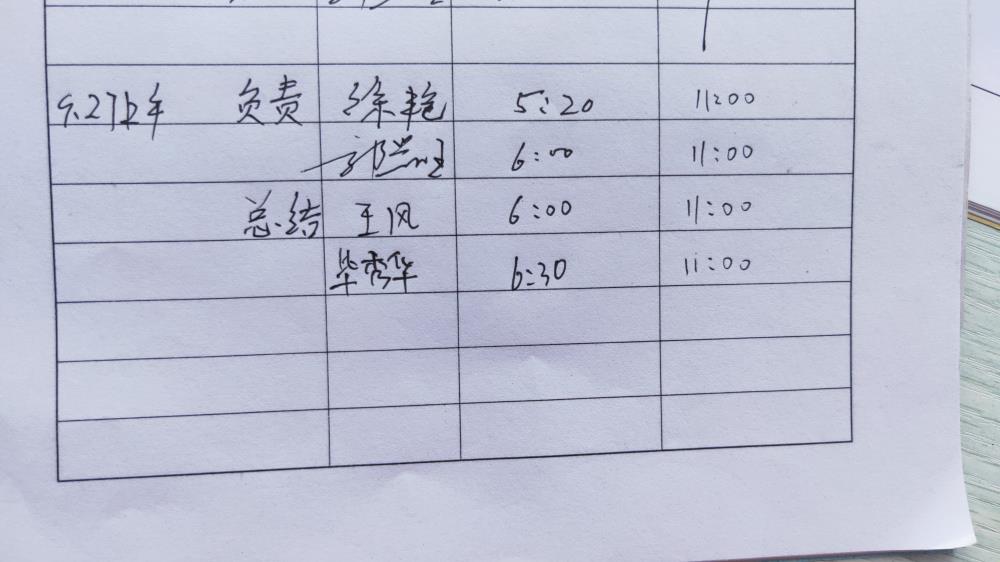 9.27上午 负责 徐艳 5:20 11:00
郭兰旺 6:00 11:00
总结 王风 6:00 11:00
毕秀华 6:30 11:00